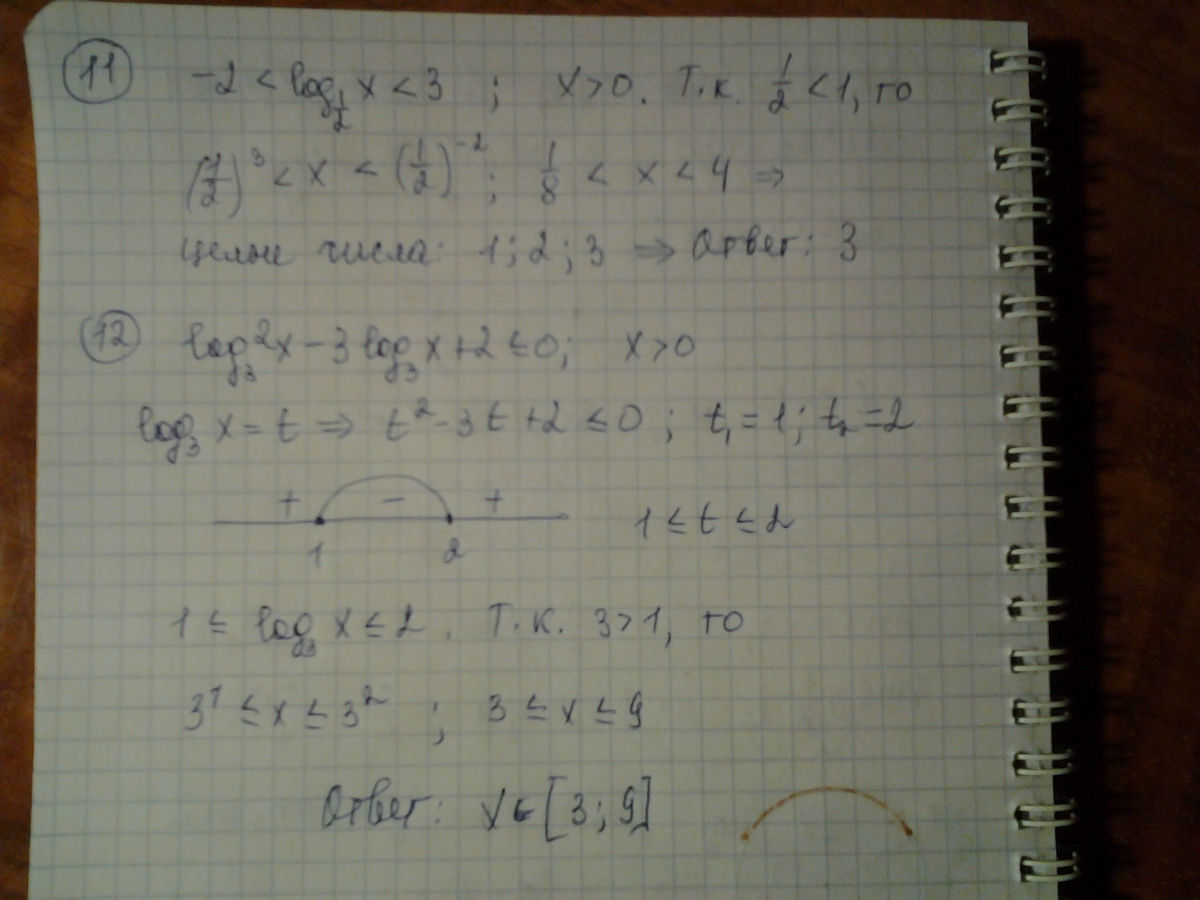 11 -2 < log_{1/2} x < 3 ; x>0. Т.к. 1/2 < 1, то
(1/2)^3 < x < (1/2)^{-2}; 1/8 < x < 4 ⇒
целые числа: 1; 2; 3 ⇒ Ответ: 3
12 log_3^2 x - 3 log_3 x + 2 ≤ 0; x>0
log_3 x = t ⇒ t^2 - 3t + 2 ≤ 0 ; t_1 = 1; t_2 = 2
+ - +
1 2 1 ≤ t ≤ 2
1 ≤ log_3 x ≤ 2. Т.к. 3>1, то
3^1 ≤ x ≤ 3^2 ; 3 ≤ x ≤ 9
Ответ: x∈[3; 9]